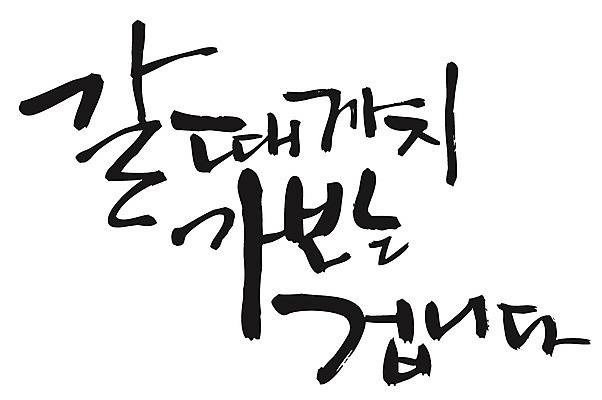 갈때까지
가보는
겁니다